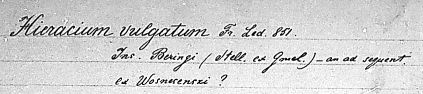 Hieracium vulgatum Fr. Led. 851.
Ins. Beringi (Stell. ex Gmel.) — an ad sequent.
ex Wosnesenski?